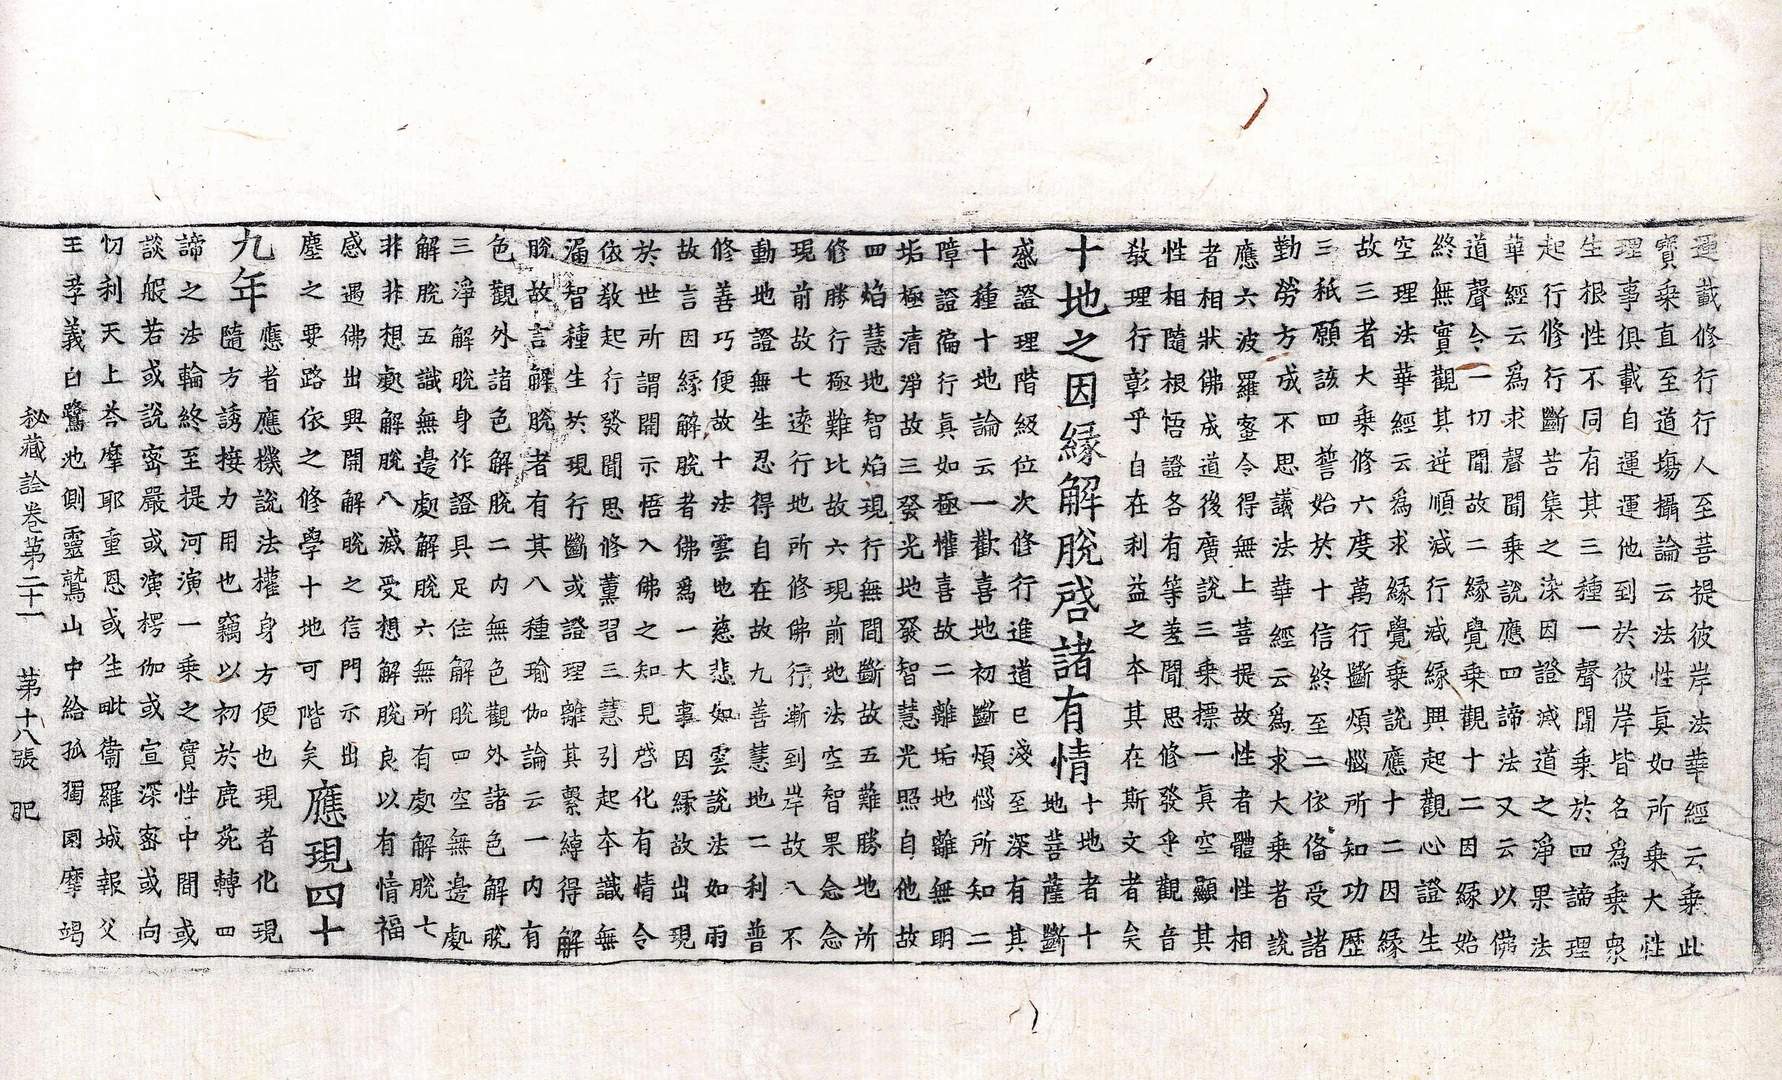 運載修行行人至菩提彼岸法華經云乗此
寶乗直至道塲攝論云法性眞如所乗大性
理事俱載自運運他到於彼岸皆名爲乗衆
生根性不同有其三種一聲聞乗於四諦理
起行修行斷苦集之染因證减道之淨果法
華經云爲求聲聞乗說應四諦法又云以佛
道聲令一切聞故二緣覺乗觀十二因緣始
終無實觀其逆順减行减緣興起觀心證生
空理法華經云爲求緣覺乗說應十二因緣
故三者大乗修六度萬行斷煩惱所知功歷
三秪願該四誓始於十信終至二依俻受諸
勤勞方成不思議法華經云爲求大乗者說
應六波羅蜜令得無上菩提故性者體性相
者相狀佛成道後廣說三乗摽一眞空顯其
性相隨根悟證各有等差聞思修發爭觀音
敎理行彰乎自在利益之夲其在斯文者矣
十地之因緣解脫啓諸有情十地者十
地菩薩斷
惑證理階級位次修行進道已淺至深有其
十種十地論云一歡喜地初斷煩惱所知二
障證徧行眞如極懽喜故二離垢地離無明
垢極清淨故三發光地發智慧光照自他故
四焰慧地智焰現行無間斷故五難勝地所
修勝行極難比故六現前地法空智果念念
現前故七遠行地所修佛行漸到岸故八不
動地證無生忍得自在故九善慧地二利普
修善巧便故十法雲地慈悲如雲說法如雨
故言因緣解脫者佛爲一大事因緣故出現
於世所謂開示悟入佛之知見啓化有情令
依敎起行發聞思修薰習三慧引起夲識無
漏智種生於現行斷或證理離其繫縛得解
脫故言解脫者有其八種瑜伽論云一内有
色觀外諸色解脫二内無色觀外諸色解脫
三淨解脫身作證具足住解脫四空無邊處
解脫五識無邊處解脫六無所有處解脫七
非非想處解脫八滅受想解脫良以有情福
感遇佛出興開解脫之信門示出
塵之要路依之修學十地可階矣
應現四十
九年應者應機說法權身方便也現者化現
隨方誘接力用也竊以初於鹿苑轉四
諦之法輪終至提河演一乗之寶性中間或
談般若或說密嚴或演楞伽或宣深密或向
忉利天上荅摩耶重恩或生毗衞羅城報父
王孝義白鷺池側靈鷲山中給孤獨園摩竭
秘藏詮卷第二十一 第十八張 肥